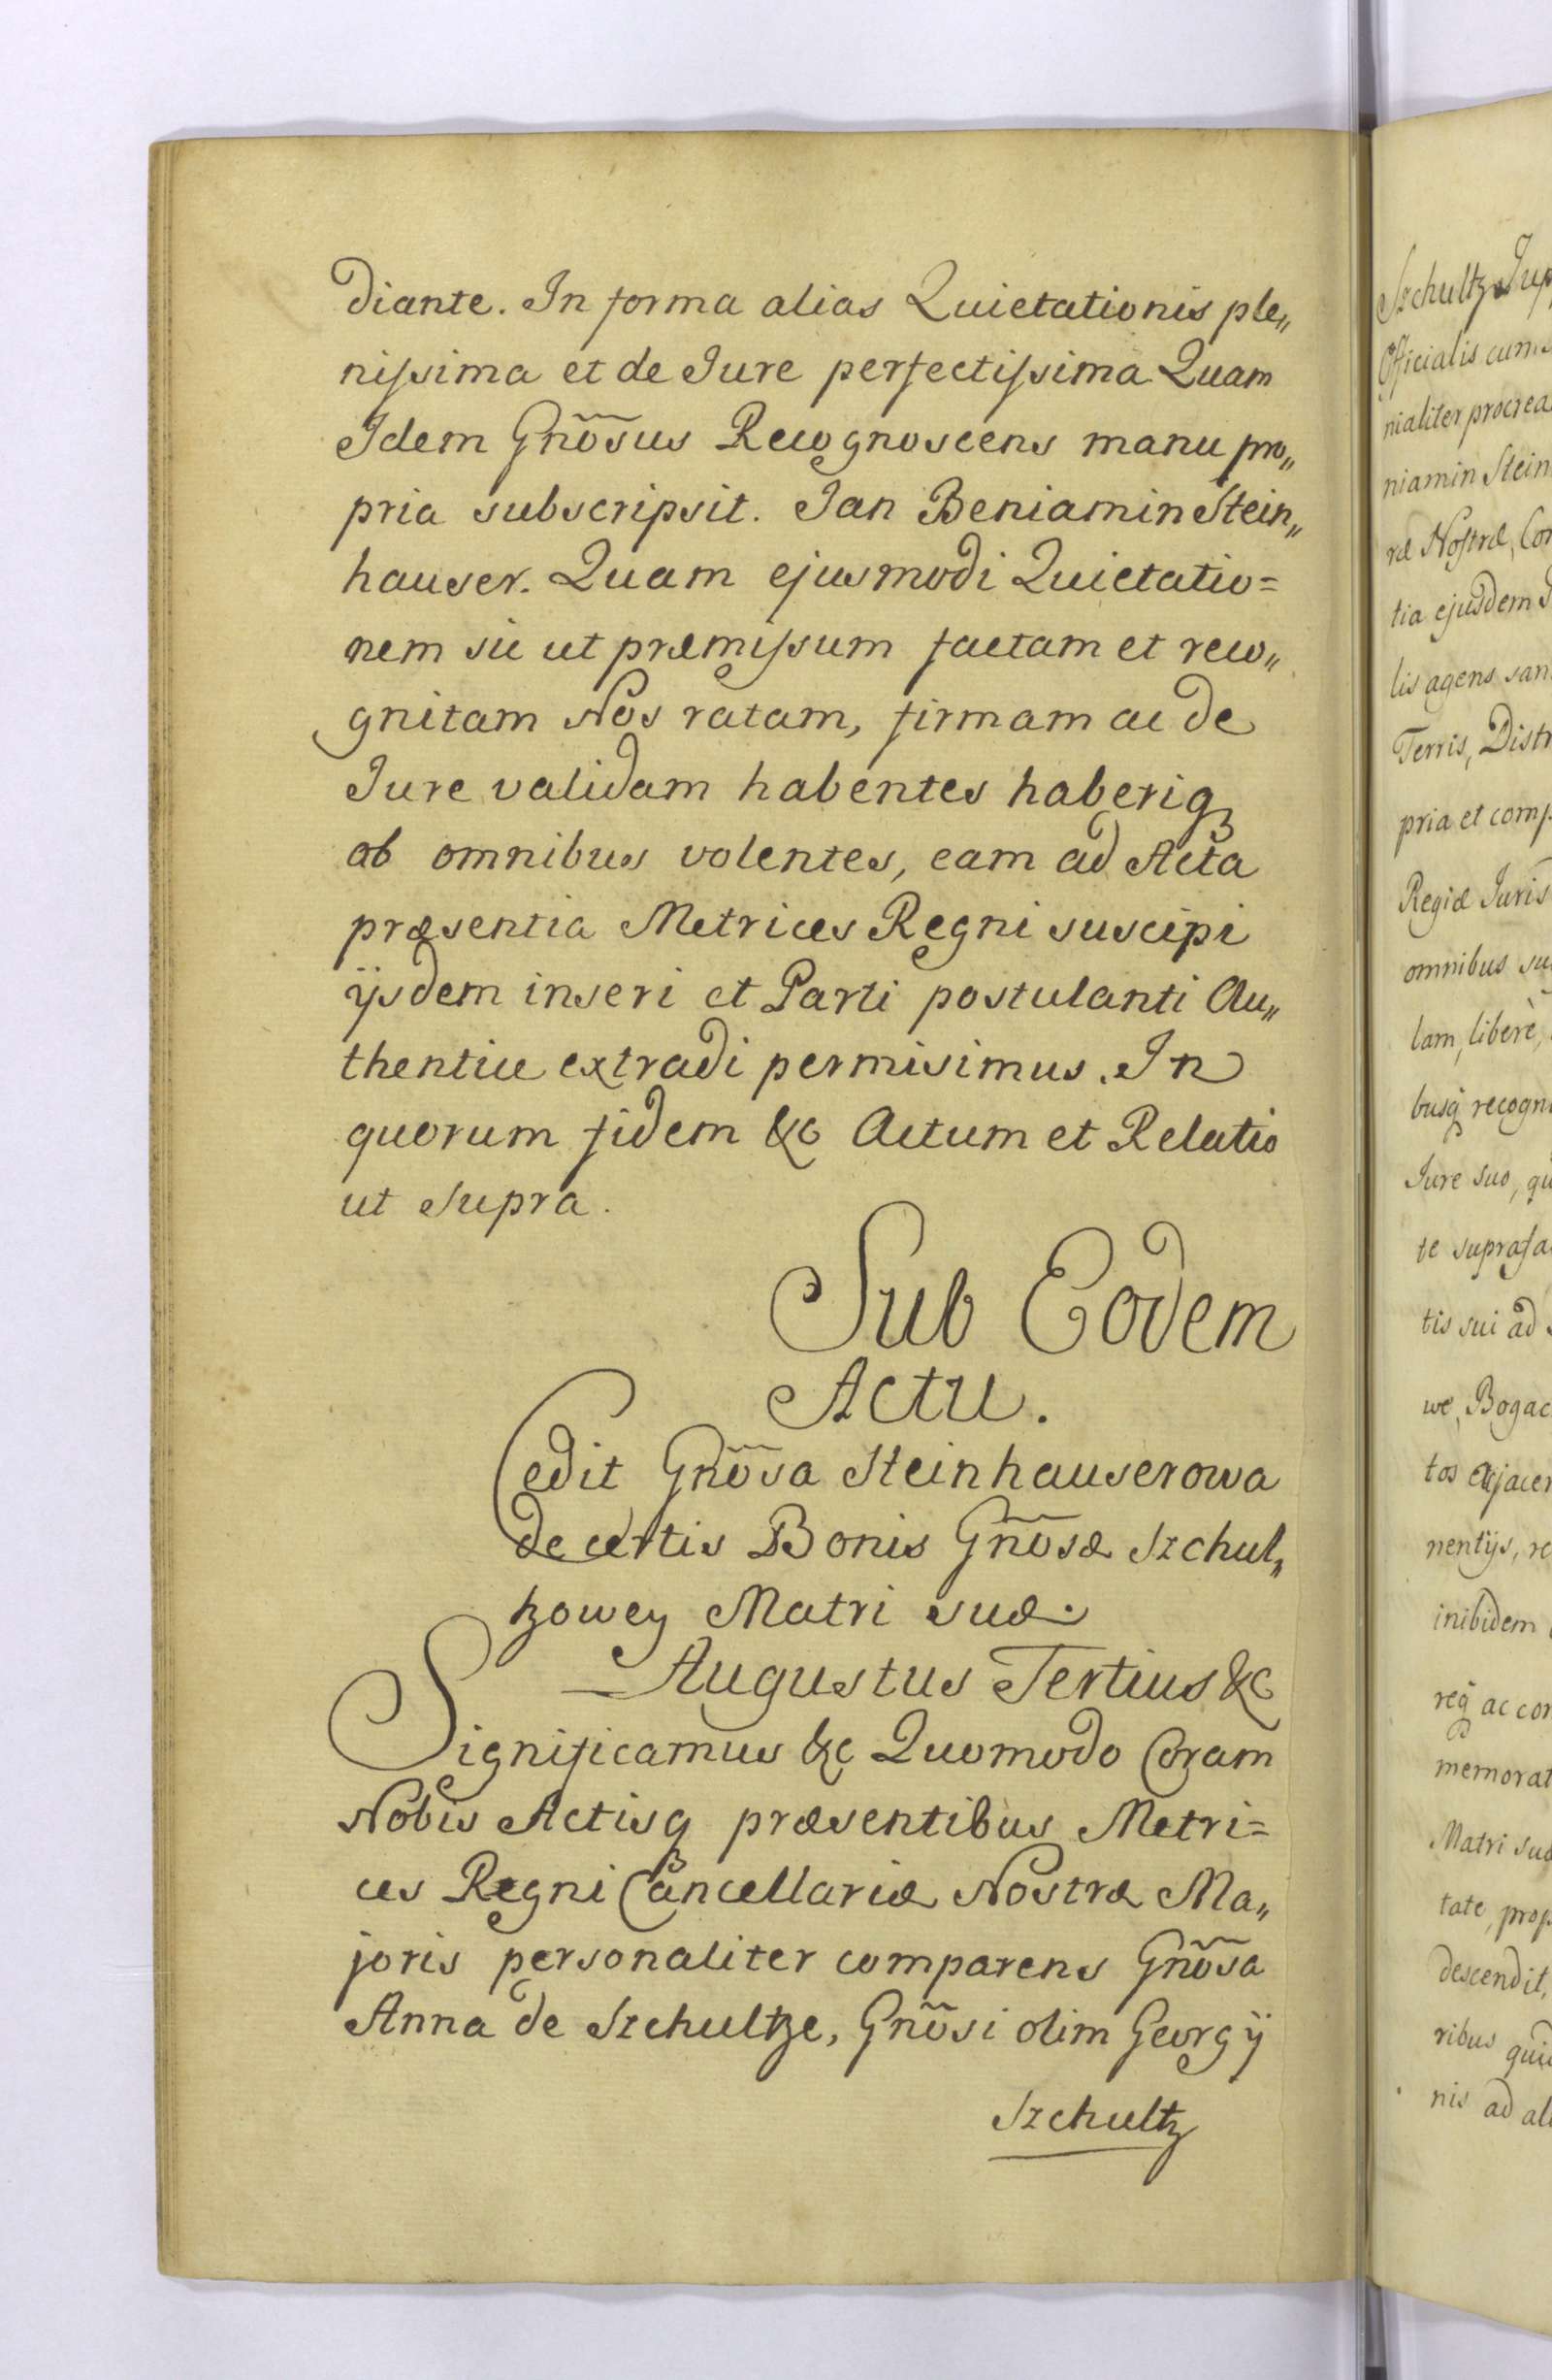 diante. In forma alias Quietationis ple„
nissima et de Jure perfectissima Quam
Idem Gnõsus Recognoscens manu pro„
pria subscripsit. Jan Beniamin Stein„
hauser. Quam ejusmodi Quietatio=
nem sic ut præmissum factam et reco„
gnitam Nos ratam, firmam ac de
Jure validam habentes haberiq
ab omnibus volentes, eam ad Acta
præsentia Metrices Regni suscipi
ijsdem inseri et Parti postulanti Au„
thentice extradi permisimus. In
quorum fidem &c Actum et Relatio
ut Supra.
Sub Eodem
Actu.
Cedit Gnõsa Steinhauserowa
de certis Bonis Gnõsæ Szchul„
tzowey Matri suæ.
Augustus Tertius &c
Significamus &c Quomodo Coram
Nobis Actisq præsentibus Metri=
ces Regni Cancellariæ Nostræ Ma„
joris personaliter comparens Gnõsa
Anna de Szchultze, Gnõsi olim Georgij
Szchultz
Szchultz Sup
Officialis cum
nialiter procrea
niamin Stein
ræ Nostræ, Con
tia ejusdem
lis agens san
Terris, Distr
pria et comp
Regiæ Juris
omnibus su
lam, liberè,
busq recogn
Jure suo, qu
te suprafa
tis sui ad
we, Bogac
tos adjacen
nentijs, re
inibidem
req ac con
memorat
Matri suæ
tate, prop
descendit,
ribus qui
nis ad ali